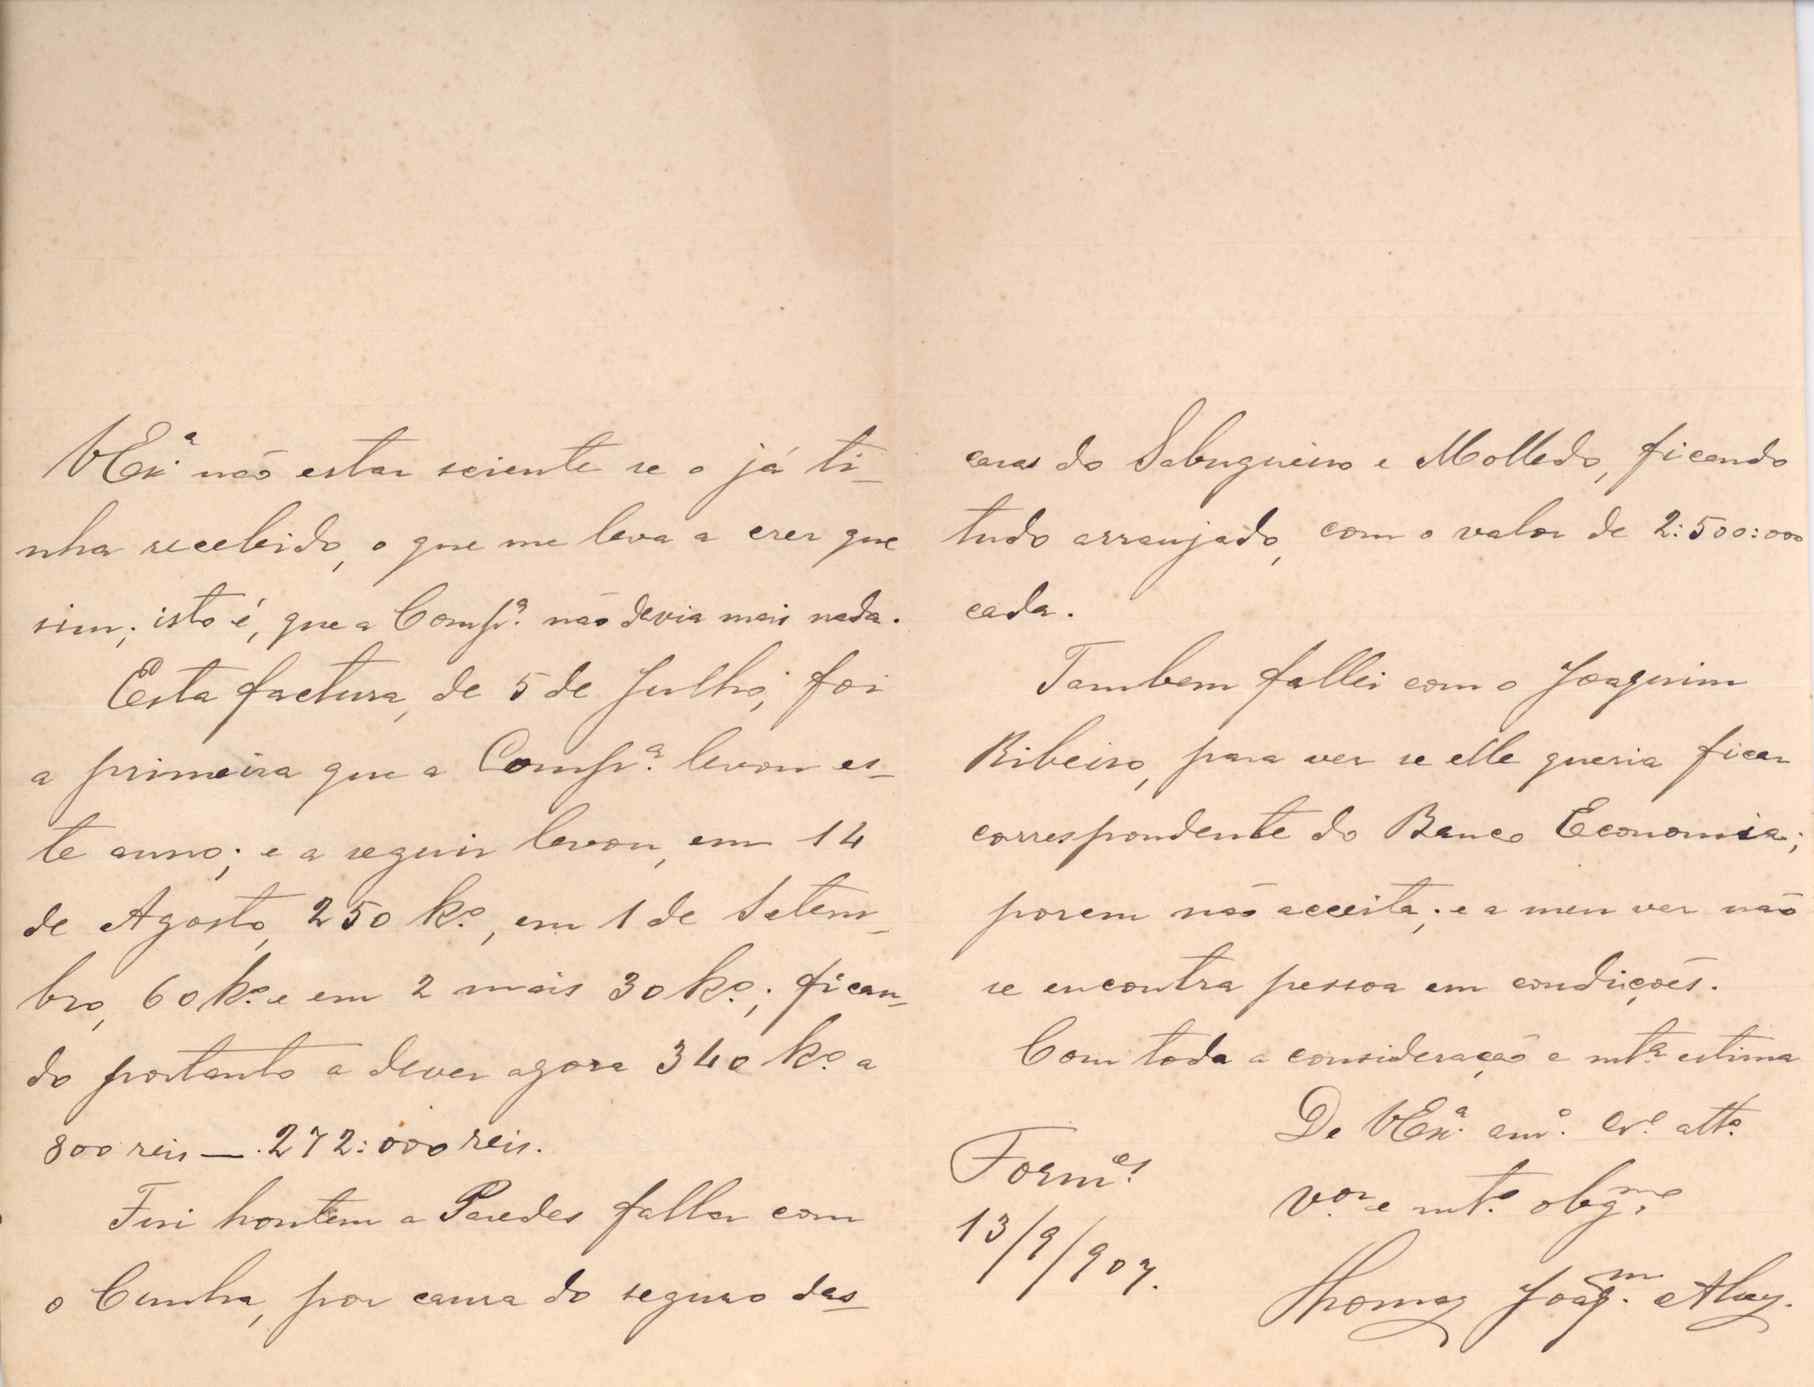 VExª não estar sciente se o já ti-
nha recebido, o que me leva a crer que
sim; isto é, que a Compª. não devia mais nada.
Esta factura, de 5 de Julho, foi
a primeira que a Compª. levou es-
te anno; e a seguir levou, em 14
de Agosto, 250 kº, em 1 de Setem-
bro, 60 kº e em 2 mais 30 kº; fican-
do portanto a dever agora 340 kº a
800 reis — 272:000 reis.
Fui hontem a Paredes fallar com
o Cunha, por causa do seguro das
casas do Sabugueiro e Molledo, ficando
tudo arranjado, com o valor de 2:500:000
cada.
Tambem fallei com o Joaquim
Ribeiro, para ver se elle queria ficar
correspondente do Banco Economia;
porem não acceita; e a meu ver não
se encontra pessoa em condições.
Com toda a consideração e mtª estima
De VExª. amº. Crº attº
Vor e mtº obgmo
Formes
13/9/907.
Thomaz Joaqm. Alvz.